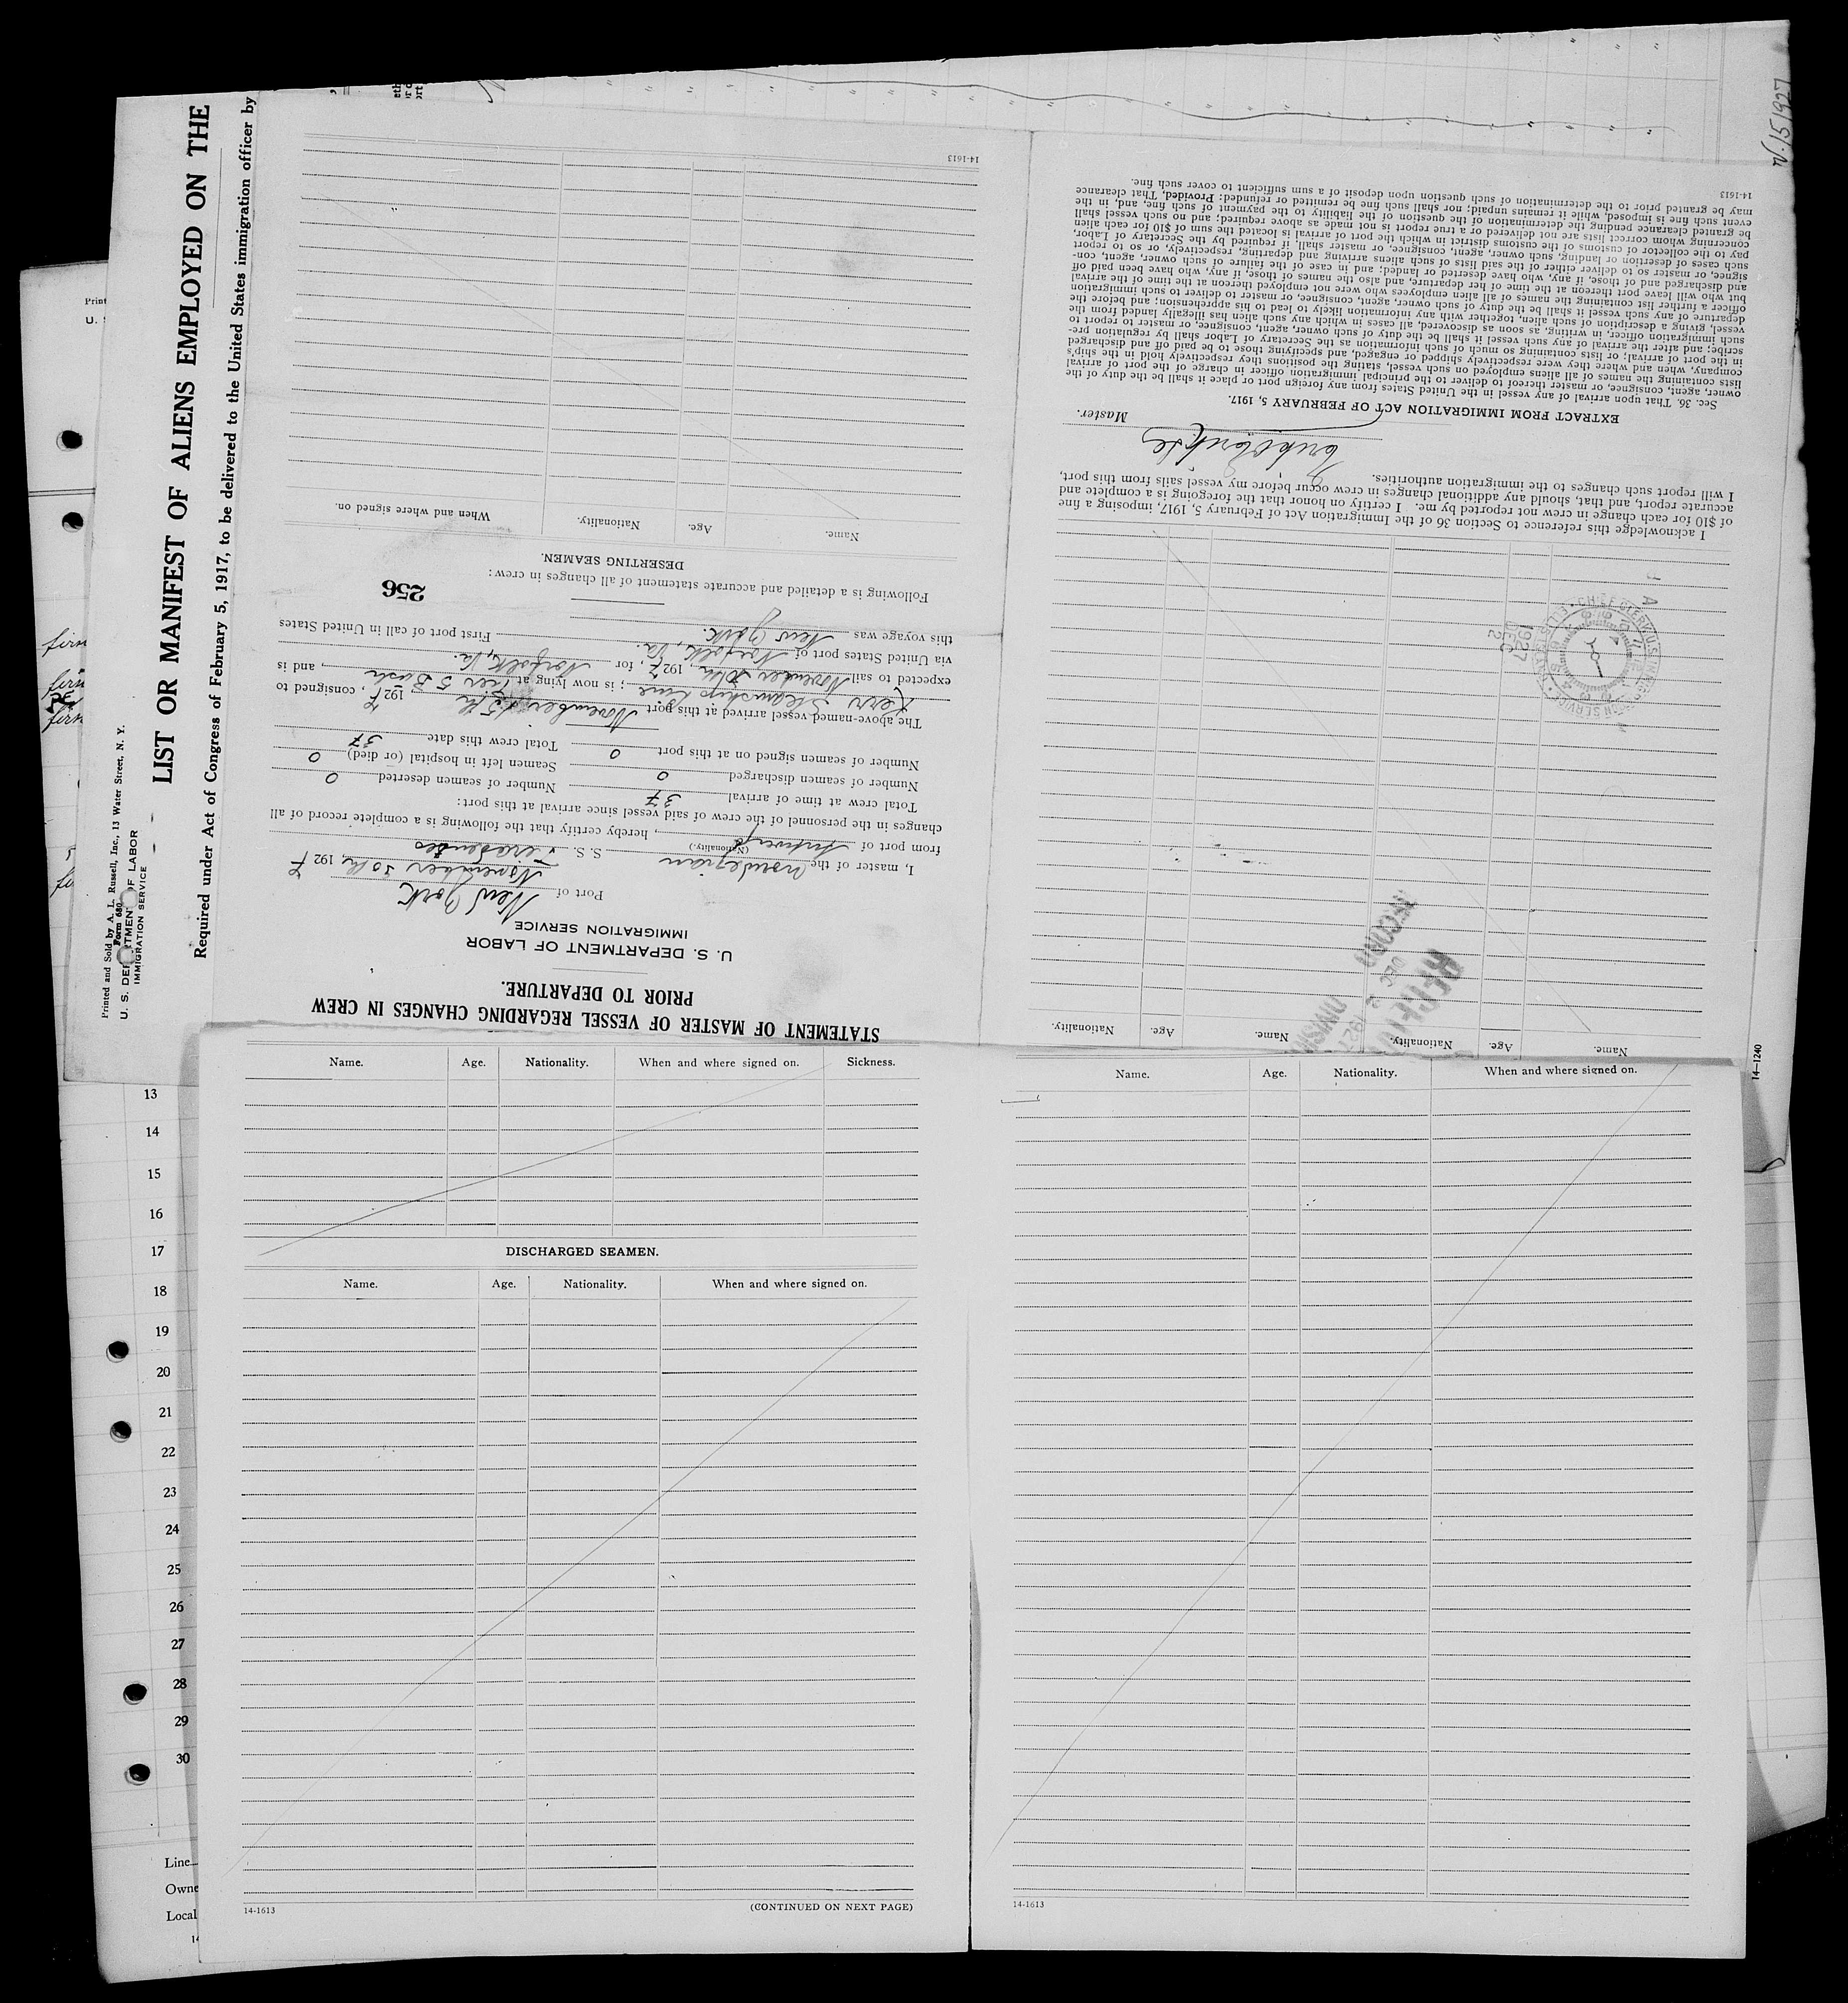 STATEMENT OF MASTER OF VESSEL REGARDING CHANGES IN CREW
PRIOR TO DEPARTURE.
U. S. DEPARTMENT OF LABOR
IMMIGRATION SERVICE
Port of New York
November 30th, 1927
I, master of the Norwegian S. S.
(Nationality.)
from port of Antwerp, hereby certify that the following is a complete record of all
changes in the personnel of the crew of said vessel since arrival at this port:
Total crew at time of arrival 37 Number of seamen deserted 0
Number of seamen discharged 0 Seamen left in hospital (or died) 0
Number of seamen signed on at this port 0 Total crew this date 37
The above-named vessel arrived at this port November 15th 1927, consigned to
Kerr Steamship Line; is now lying at Pier 5 Bush, and is
expected to sail November 30th, 1927, for Norfolk, Va.
via United States port of Norfolk, Va. First port of call in United States
this voyage was New York.
256
Following is a detailed and accurate statement of all changes in crew:
DESERTING SEAMEN.
Name. Age. Nationality. When and where signed on.
14-1613
Name. Age. Nationality. Name. Age. Nationality.
RECEIVED
DEC 2 1927
RECORD DIVISION
1927
DEC
2
I acknowledge this reference to Section 36 of the Immigration Act of February 5, 1917, imposing a fine
of $10 for each change in crew not reported by me. I certify on honor that the foregoing is a complete and
accurate report, and that, should any additional changes in crew occur before my vessel sails from this port,
I will report such changes to the immigration authorities.
Master.
EXTRACT FROM IMMIGRATION ACT OF FEBRUARY 5, 1917.
Sec. 36. That upon arrival of any vessel in the United States from any foreign port or place it shall be the duty of the
owner, agent, consignee, or master thereof to deliver to the principal immigration officer in charge of the port of arrival
lists containing the names of all aliens employed on such vessel, stating the positions they respectively hold in the ship's
company, when and where they were respectively shipped or engaged, and specifying those to be paid off and discharged
in the port of arrival; or lists containing so much of such information as the Secretary of Labor shall by regulation pre-
scribe; and after the arrival of any such vessel it shall be the duty of such owner, agent, consignee, or master to report to
such immigration officer, in writing, as soon as discovered, all cases in which any such alien has illegally landed from the
vessel, giving a description of such alien, together with any information likely to lead to his apprehension; and before the
departure of any such vessel it shall be the duty of such owner, agent, consignee, or master to deliver to such immigration
officer a further list containing the names of all alien employees who were not employed thereon at the time of the arrival
but who will leave port thereon at the time of her departure, and also the names of those, if any, who have been paid off
and discharged and of those, if any, who have deserted or landed; and in case of the failure of such owner, agent, con-
signee, or master so to deliver either of the said lists of such aliens arriving and departing, respectively, or so to report
such cases of desertion or landing, such owner, agent, consignee, or master, shall, if required by the Secretary of Labor,
pay to the collector of customs of the customs district in which the port of arrival is located the sum of $10 for each alien
concerning whom correct lists are not delivered or a true report is not made as above required; and no such vessel shall
be granted clearance pending the determination of the question of the liability to the payment of such fine, and, in the
event such fine is imposed, while it remains unpaid; nor shall such fine be remitted or refunded: Provided, That clearance
may be granted prior to the determination of such question upon deposit of a sum sufficient to cover such fine.
14-1613
Printed and Sold by A. L. Russell, Inc., 13 Water Street, N. Y.
Form 680
U. S. DEPARTMENT OF LABOR
IMMIGRATION SERVICE
LIST OR MANIFEST OF ALIENS EMPLOYED ON THE
Required under Act of Congress of February 5, 1917, to be delivered to the United States immigration officer by
14—1240
Name. Age. Nationality. When and where signed on. Sickness.
DISCHARGED SEAMEN.
Name. Age. Nationality. When and where signed on.
14-1613 (CONTINUED ON NEXT PAGE)
Name. Age. Nationality. When and where signed on.
14-1613
13
14
15
16
17
18
19
20
21
22
23
24
25
26
27
28
29
30
Line
Owne
Local